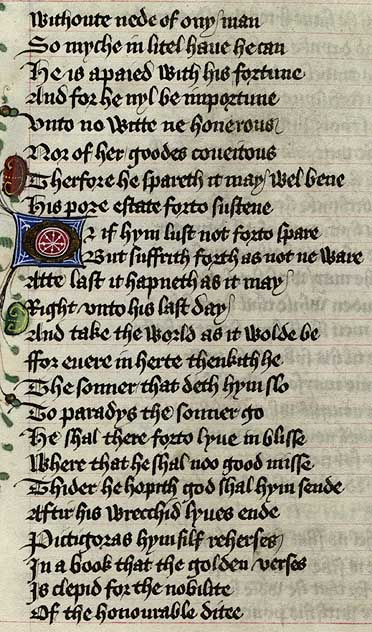 Withoute nede of ony man
So myche in litel haue he can
He is apaied with his fortune
And for he nyl be importune
Vnto no witte ne honerous
Nor of her goodes coueitous
Therfore he spareth it may wel bene
His pore estate forto sustene
Or if hym lust not forto spare
But suffrith forth as not ne ware
Atte last it hapneth as it may
Right vnto his last day
And take the world as it wolde be
ffor euere in herte thenkith he
The sonner that deth hym slo
To paradys the sonner go
He shal there forto lyue in blisse
Where that he shal noo good misse
Thider he hopith god shal hym sende
Aftir his wrecchid lyues ende
Pictigoras hym silf reherses
In a book that the golden verses
Is clepid for the nobilite
Of the honourable ditee